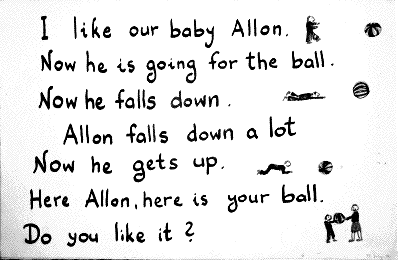 I like our baby Allon.
Now he is going for the ball.
Now he falls down.
Allon falls down a lot
Now he gets up.
Here Allon, here is your ball.
Do you like it?